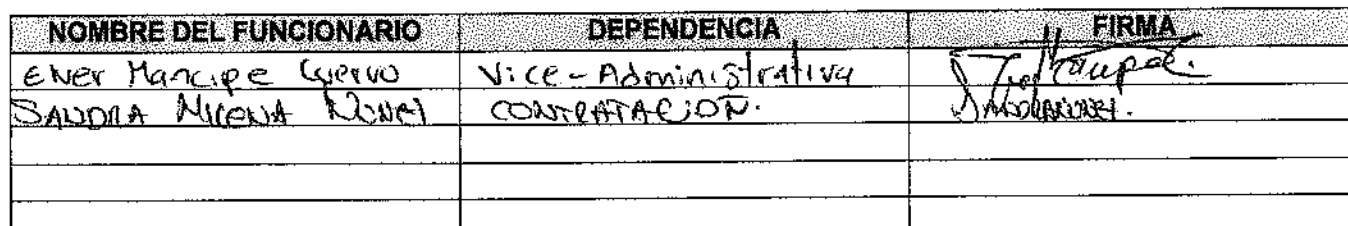 NOMBRE DEL FUNCIONARIO DEPENDENCIA FIRMA
Ever Mancipe Cuervo Vice-Administrativa
SANDRA MILENA NUNEZ CONTRATACION.